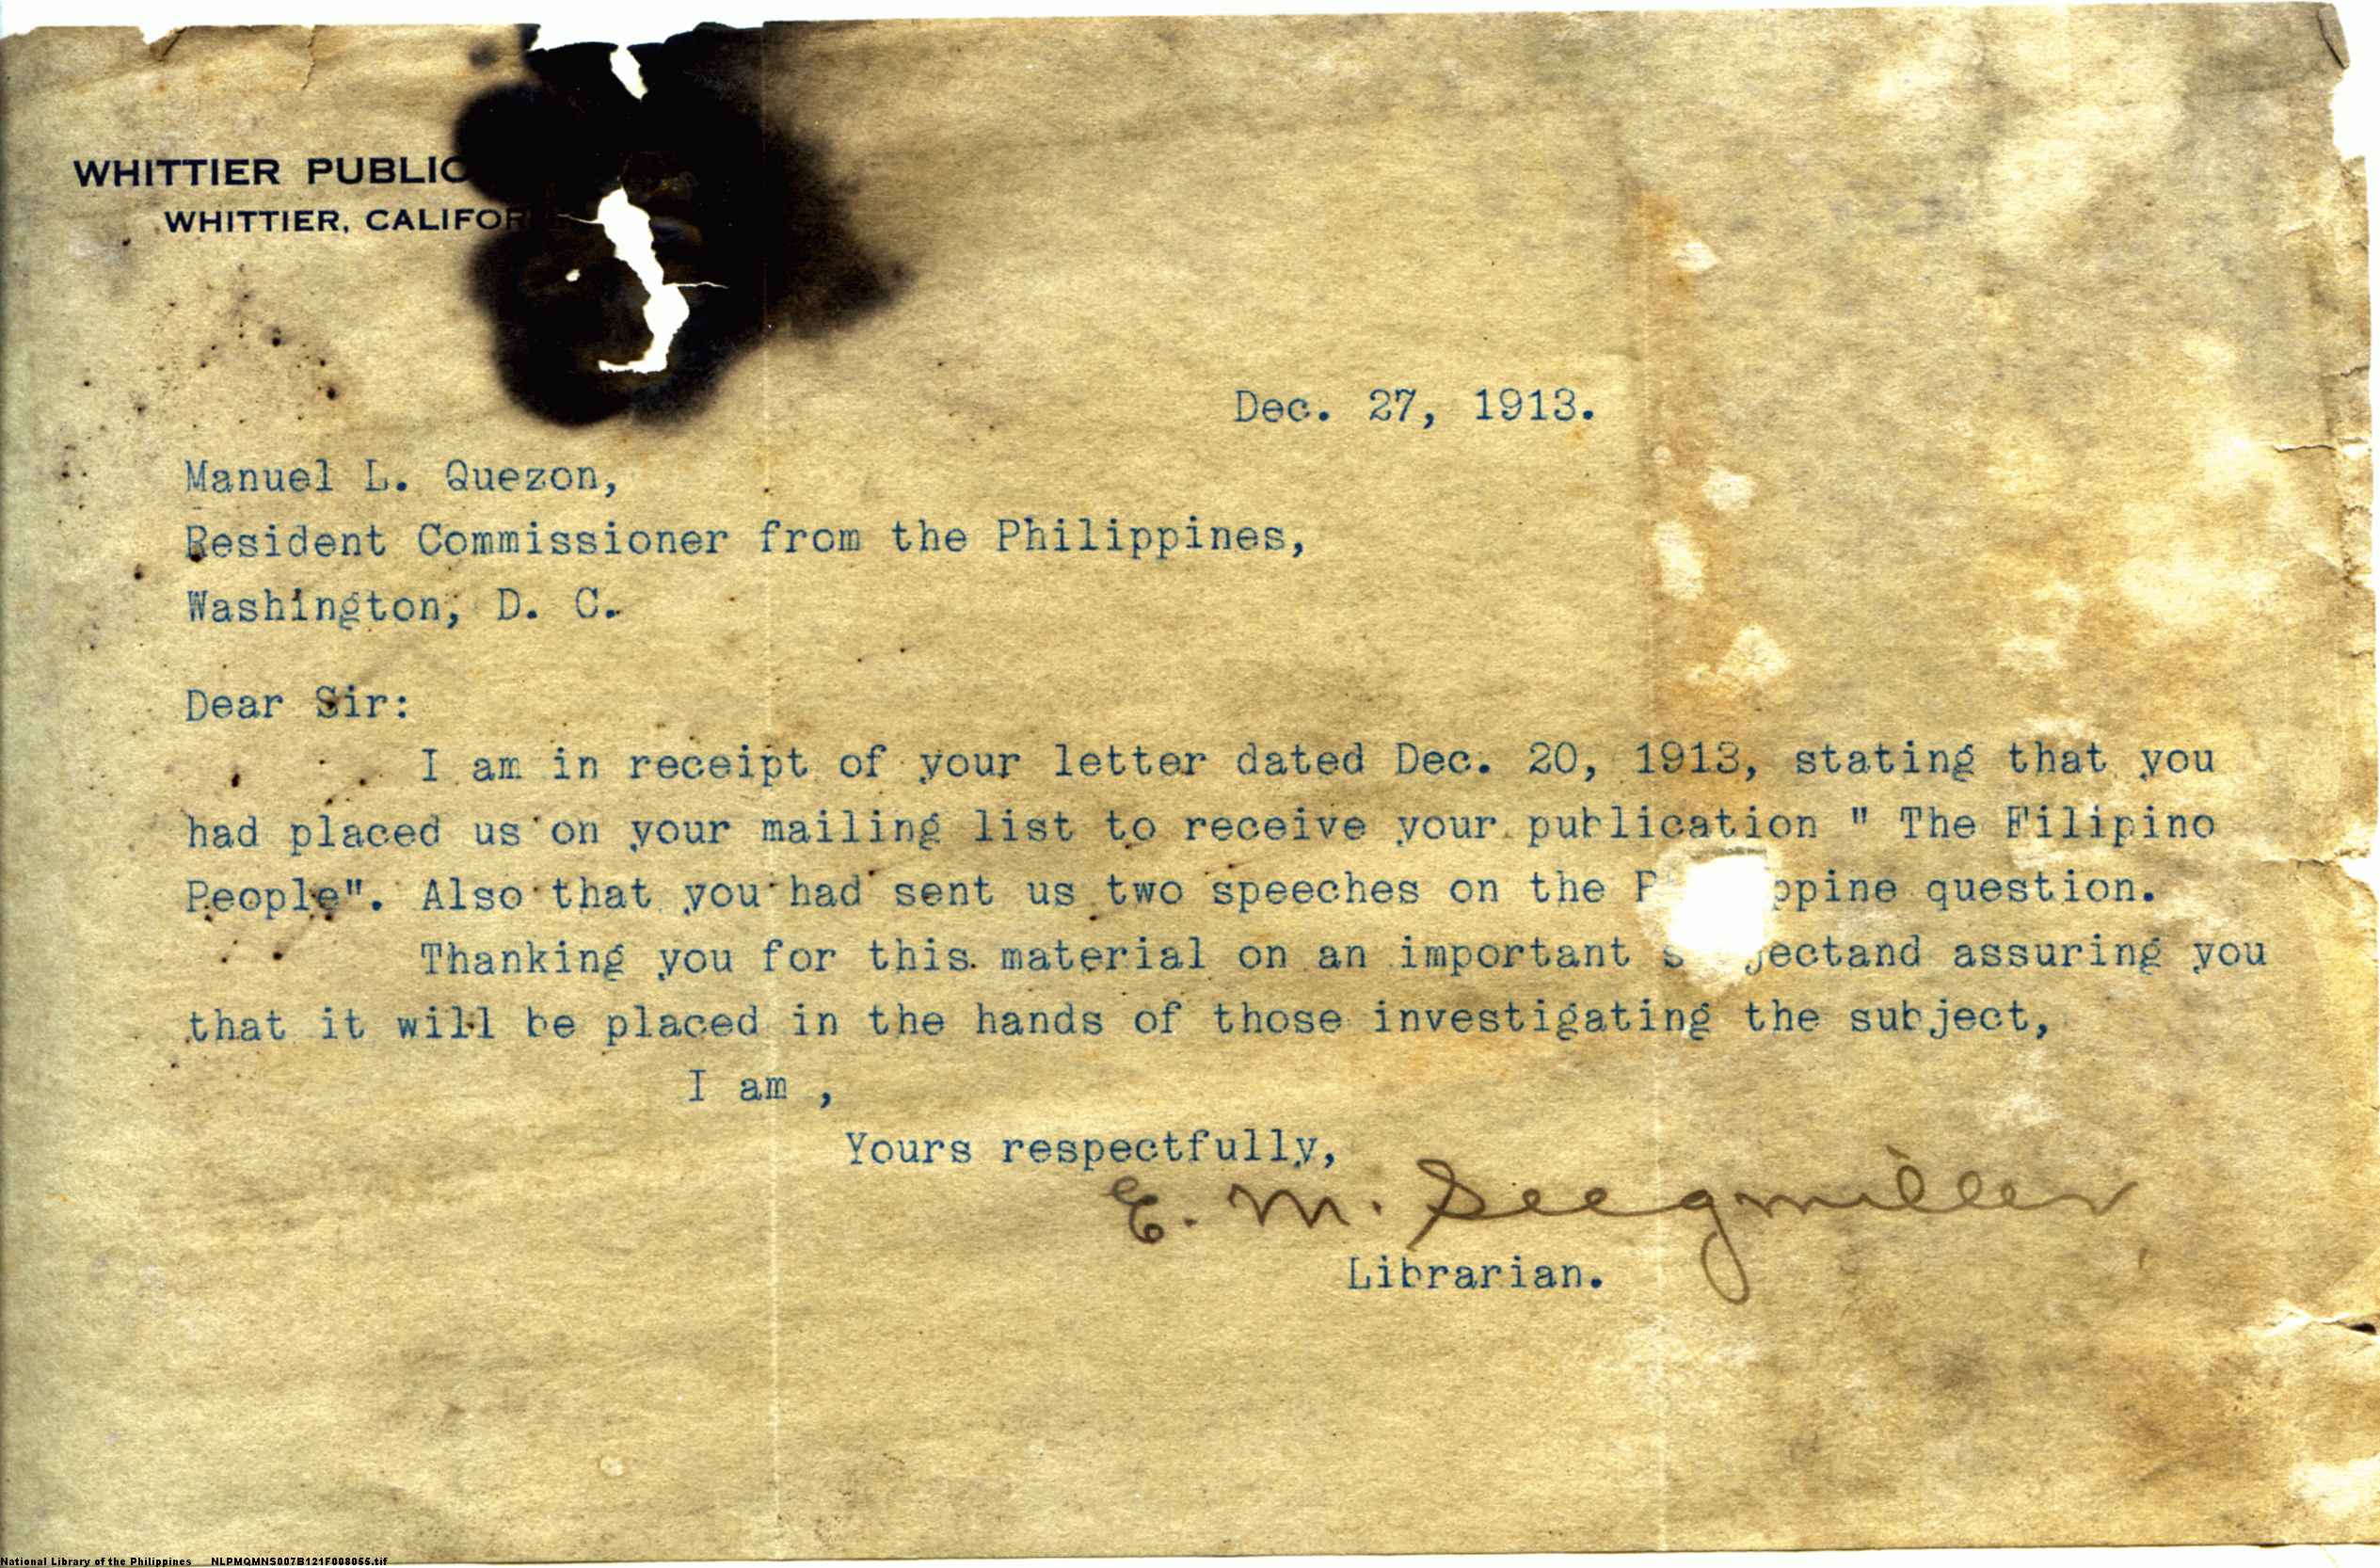 WHITTIER PUBLIC
WHITTIER, CALIFOR
Dec. 27, 1913.
Manuel L. Quezon,
Resident Commissioner from the Philippines,
Washington, D. C.
Dear Sir:
I am in receipt of your letter dated Dec. 20, 1913, stating that you
had placed us on your mailing list to receive your publication " The Filipino
People". Also that you had sent us two speeches on the question.
Thanking you for this material on an important assuring you
that it will be placed in the hands of those investigating the subject,
I am ,
Yours respectfully,
E. M. Seegmiller
Librarian.
National Library of the Philippines NLPMQMNS007B121F008055.tif